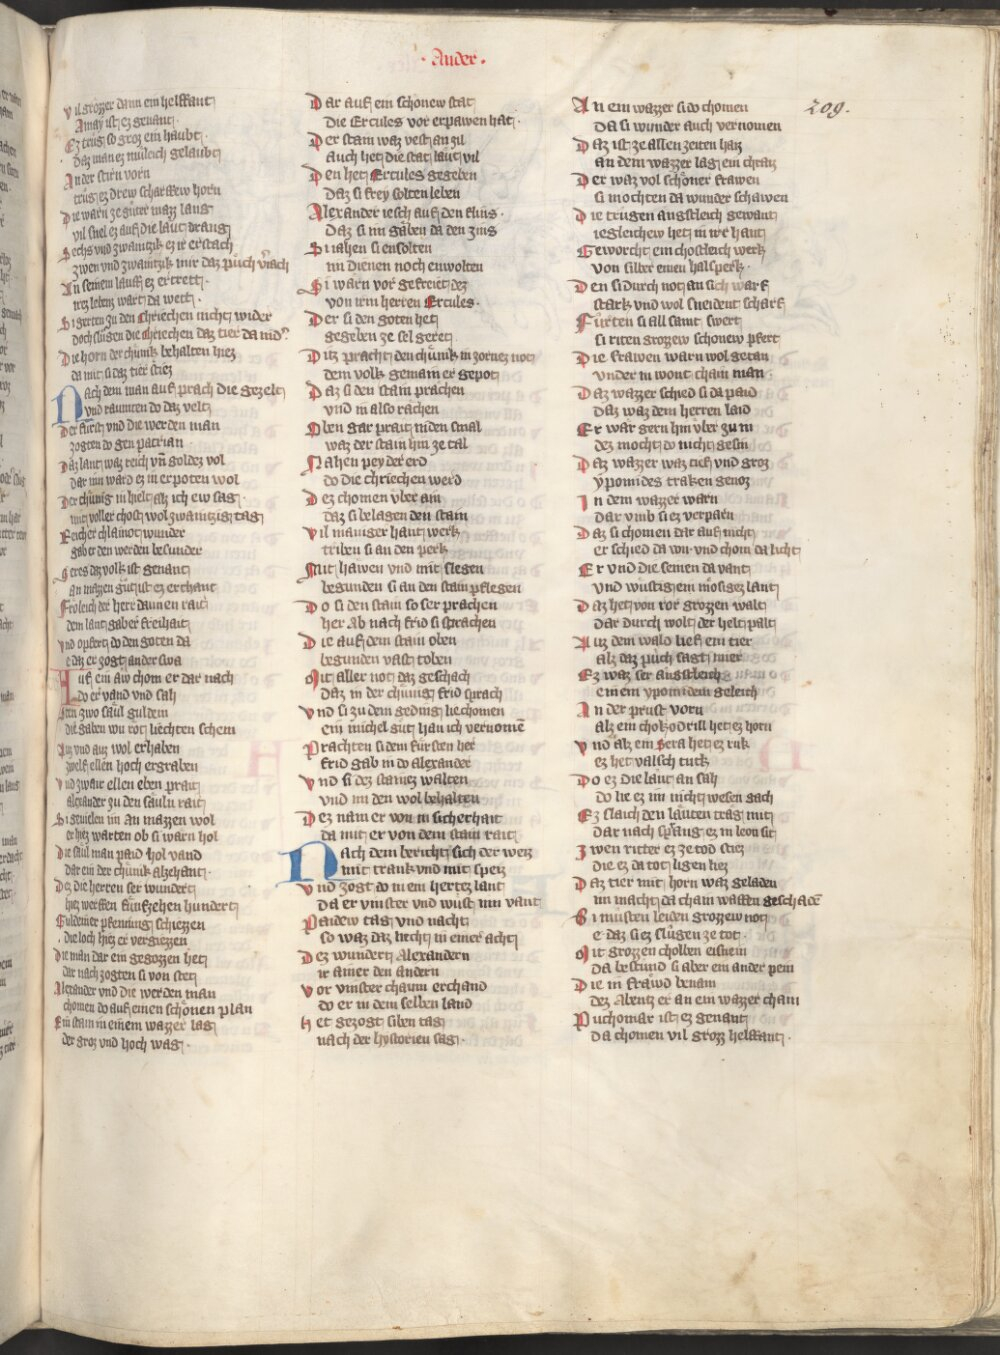 · Ander ·
209.
vil grozzer dann ein helffant
Amay ist ez genant ·
Ez trug so groz ein haubt ·
daz man ez müleich gelaubt
An der stirn vorn
trüg ez drew scharffew horn
Die warn ze guter mazz lang
vil snel ez auf die läut drang
Sechs vnd zwantzik ez ir erstach
zwen vnd zwaintzik mir daz püch v̾iach
An seinem lauff ez ertrett
irez lebens wart da wett ·
Si gerten zu den Chriechen nicht wider
doch slugen die chriechen daz tier da nid̾
Die horn der chünik behalten hiez
da mit si daz tier stiez
Nach dem man auf prach die gezelt
vnd raumten do daz velt
Der fürst vnd die werden man
zogten do gen patrian
Daz lant waz reich vn̄ goldez vol
dar inn ward ez in erpoten wol
Der chünig in hielt als ich ew sag
mit voller chost wol zwaintzig tag
Reicher chlainot wunder
gab er den werden besunder
Seres daz volk ist genant
an mazzen gut ist ez erchant
Frölich der herr dannen rait
dem lant gab er freihait
Vnd opfert do den goten da
e daz er zogt ander swa
Auf ein aw chom er dar nach
do er vand vnd sah
Sten zwo saul guldein
die gaben wu rot liechten schein
Auz vnd auz wol erhaben
zwelf ellen hoch ergraben
Vnd zwaie ellen eben prait
Alexander zu den säuln rait
Si geuielen im an mazzen wol
er hiez warten ob si warn hol
Die saul man paid hol vand
dar ein der chünik alzehant
Dez die herren ser wundert
hiez werffen fünfzehen hundert
Guldeiner pfenning schiezzen
die loch hiez er vergiezzen
Die man dar ein gegozzen het
dar nach zogten si von stet
Alexander vnd die werden man
chomen do auf einen schönen plan
Ein stain in einem wazzer lag
der groz vnd hoch wag ·
Dar auf ein schönew stat
die Ercules vor erpawen hat ·
Der stain waz vest an zil
auch het die stat läut vil
Den het Ercules gegeben
daz si frey solten leben
Alexander iesch auf den fluis ·
daz si im gäben da den zins
Si iahen si ensolten
im dienen noch enwolten
Si warn vor gefreiet dez
von irm herren Ercules ·
Der si den goten het
gegeben ze sel geret
Ditz pracht den chünik in zornez not
dem volk gemain er gepot
Daz si den stain prachen
vnd in also rächen
Oben gar prait niden smal
waz der stain hin ze tal
Nahen pey der erd
do die chriechen werd
Dez chomen vber ain
daz si belagen den stain
Vil maniger hant werk
triben si an den perk
Mit hawen vnd mit slegen
begunden si an den stain pflegen
Do si den stain so ser prachen
her ab nach frid si sprachen
Die auf dem stain oben
begunden vast toben
Mit aller not daz geschach
daz in der chünig frid sprach
Vnd si zu dem geding lie chomen
ein michel gut han ich vernomē
Prachten si dem fürsten her
frid gab in do alexander
Vnd si dez stainez walten
vnd im den wol behalten
Dez nam er von in sicherhait
da mit er von dem stain rait
Nach dem bericht sich der weiz
mit trank vnd mit speiz
Vnd zogt do in ein hertez lant
da er vinster vnd wüst inn vant
Paidew tag vnd nacht
so waz daz liecht in einer acht
Dez wundert Alexandern
ir ainer den andern
Vor vinster chaum erchand
do er in dem selben land
Het gezogt siben tag
nach der hystorien sag ·
An ein wazzer si do chomen
da si wunder auch vernomen
Daz ist ze allen zeiten haiz
an dem wazzer lag ein chraiz
Der waz vol schöner frawen
si mochten da wunder schawen
Die trugen angstleich gewant
iegleichew het in irr hant
Geworcht ein chostleich werk
von silber einen halsperk ·
Den si durch not an sich warf
stark vnd wol sneident scharf
Fürten si all samt swert
si riten grozzew schonew pfert
Die frawen warn wol getan
vnder in wont chain man ·
Daz wazzer schied si da paid
daz waz dem herren laid
Er war gern hin vber zu in
dez mocht do nicht gesin
Daz wazzer waz tief vnd groz
ypomides traken genoz
In dem wazzer warn
dar vmb si ez verparn
Daz si chomen dar auf nicht
er schied da von vnd chom da licht
Er vnd die seinen da vant
vnd wustigem mosigez lant
Daz het von ror grozzen walt
dar durch wolt der helt palt
Auz dem wald lief ein tier
alz daz püch sagt mier
Ez waz ser angstleich
einem ypomidem geleich
An der prust vorn
alz ein chokodrill het ez horn
Vnd alz ein sera het ez ruk
ez het valsch tuck
Do ez die läut an sah
do lie ez im nicht wesen gach
Ez slaich den läuten träg mit
dar nach sprang ez in leon sit
Zwen ritter ez ze tod stiez
die ez da tot ligen liez
Daz tier mit horn waz geladen
im macht da chain waffen geschadē
Si musten leiden grozzew not
e daz si ez slugen ze tot ·
Mit grozzen cholben eisnein
da bestund si aber ein ander pein
Die in fräwd benam
dez abentz er an ein wazzer cham
Puchomar ist ez genant
da chomen vil grozz helffant